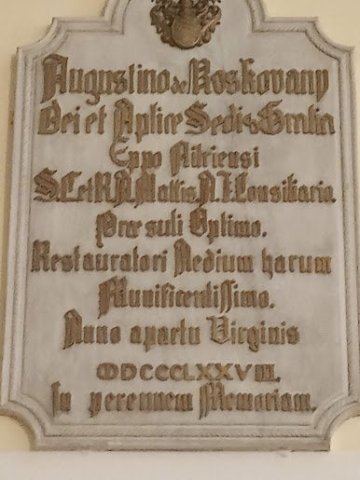 Augustino de Roskovany
Dei et Aplicæ Sedis Gratia
Eppo Nitriensi
S. C. et R. A. Mattis A. I. Consiliario.
Præsuli Optimo.
Restauratori Aedium harum
Munificentissimo.
Anno a partu Virginis
MDCCCLXXVIII.
In perennem Memoriam.